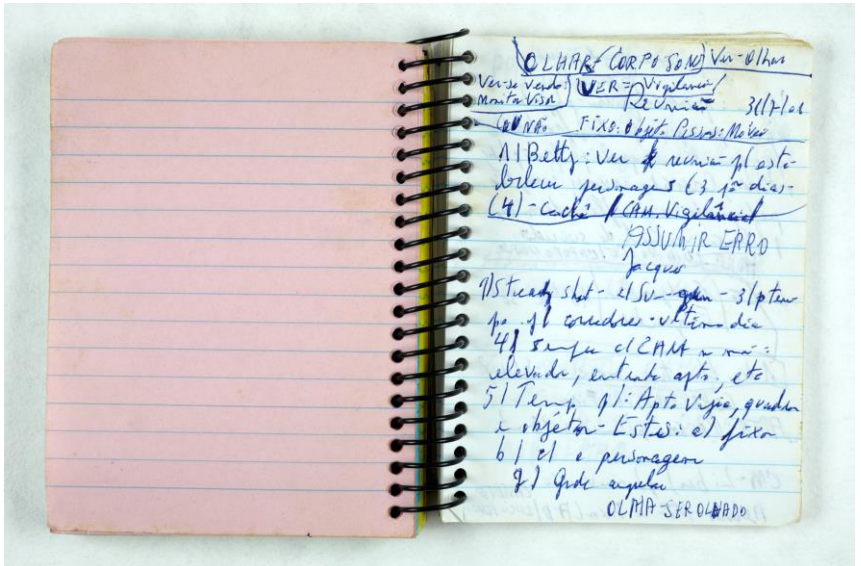 OLHAR (CORPO SOM) Ver-Olhar
Ver-se vendo: VER = Vigilância
Monitor Visor Reunião 31/7/01
ou NÃO FIXO: Objeto Pessoas: Móvel
1) Betty: Ver reunião p/ esta-
belecer personagens (3 dias-
(4) - Cachê CAM. Vigilância
ASSUMIR ERRO
Jacques
Steady shot - 3/p tem
po p/ corredores - último dia
4) Sempre c/ CAM na mão:
elevador, entrada apto, etc
5) Temp p/: Apto Vigia,
e objetos - Estes: c/ fixa
6) c/ e personagem
7) Grde angular
OLHA - SER OLHADO